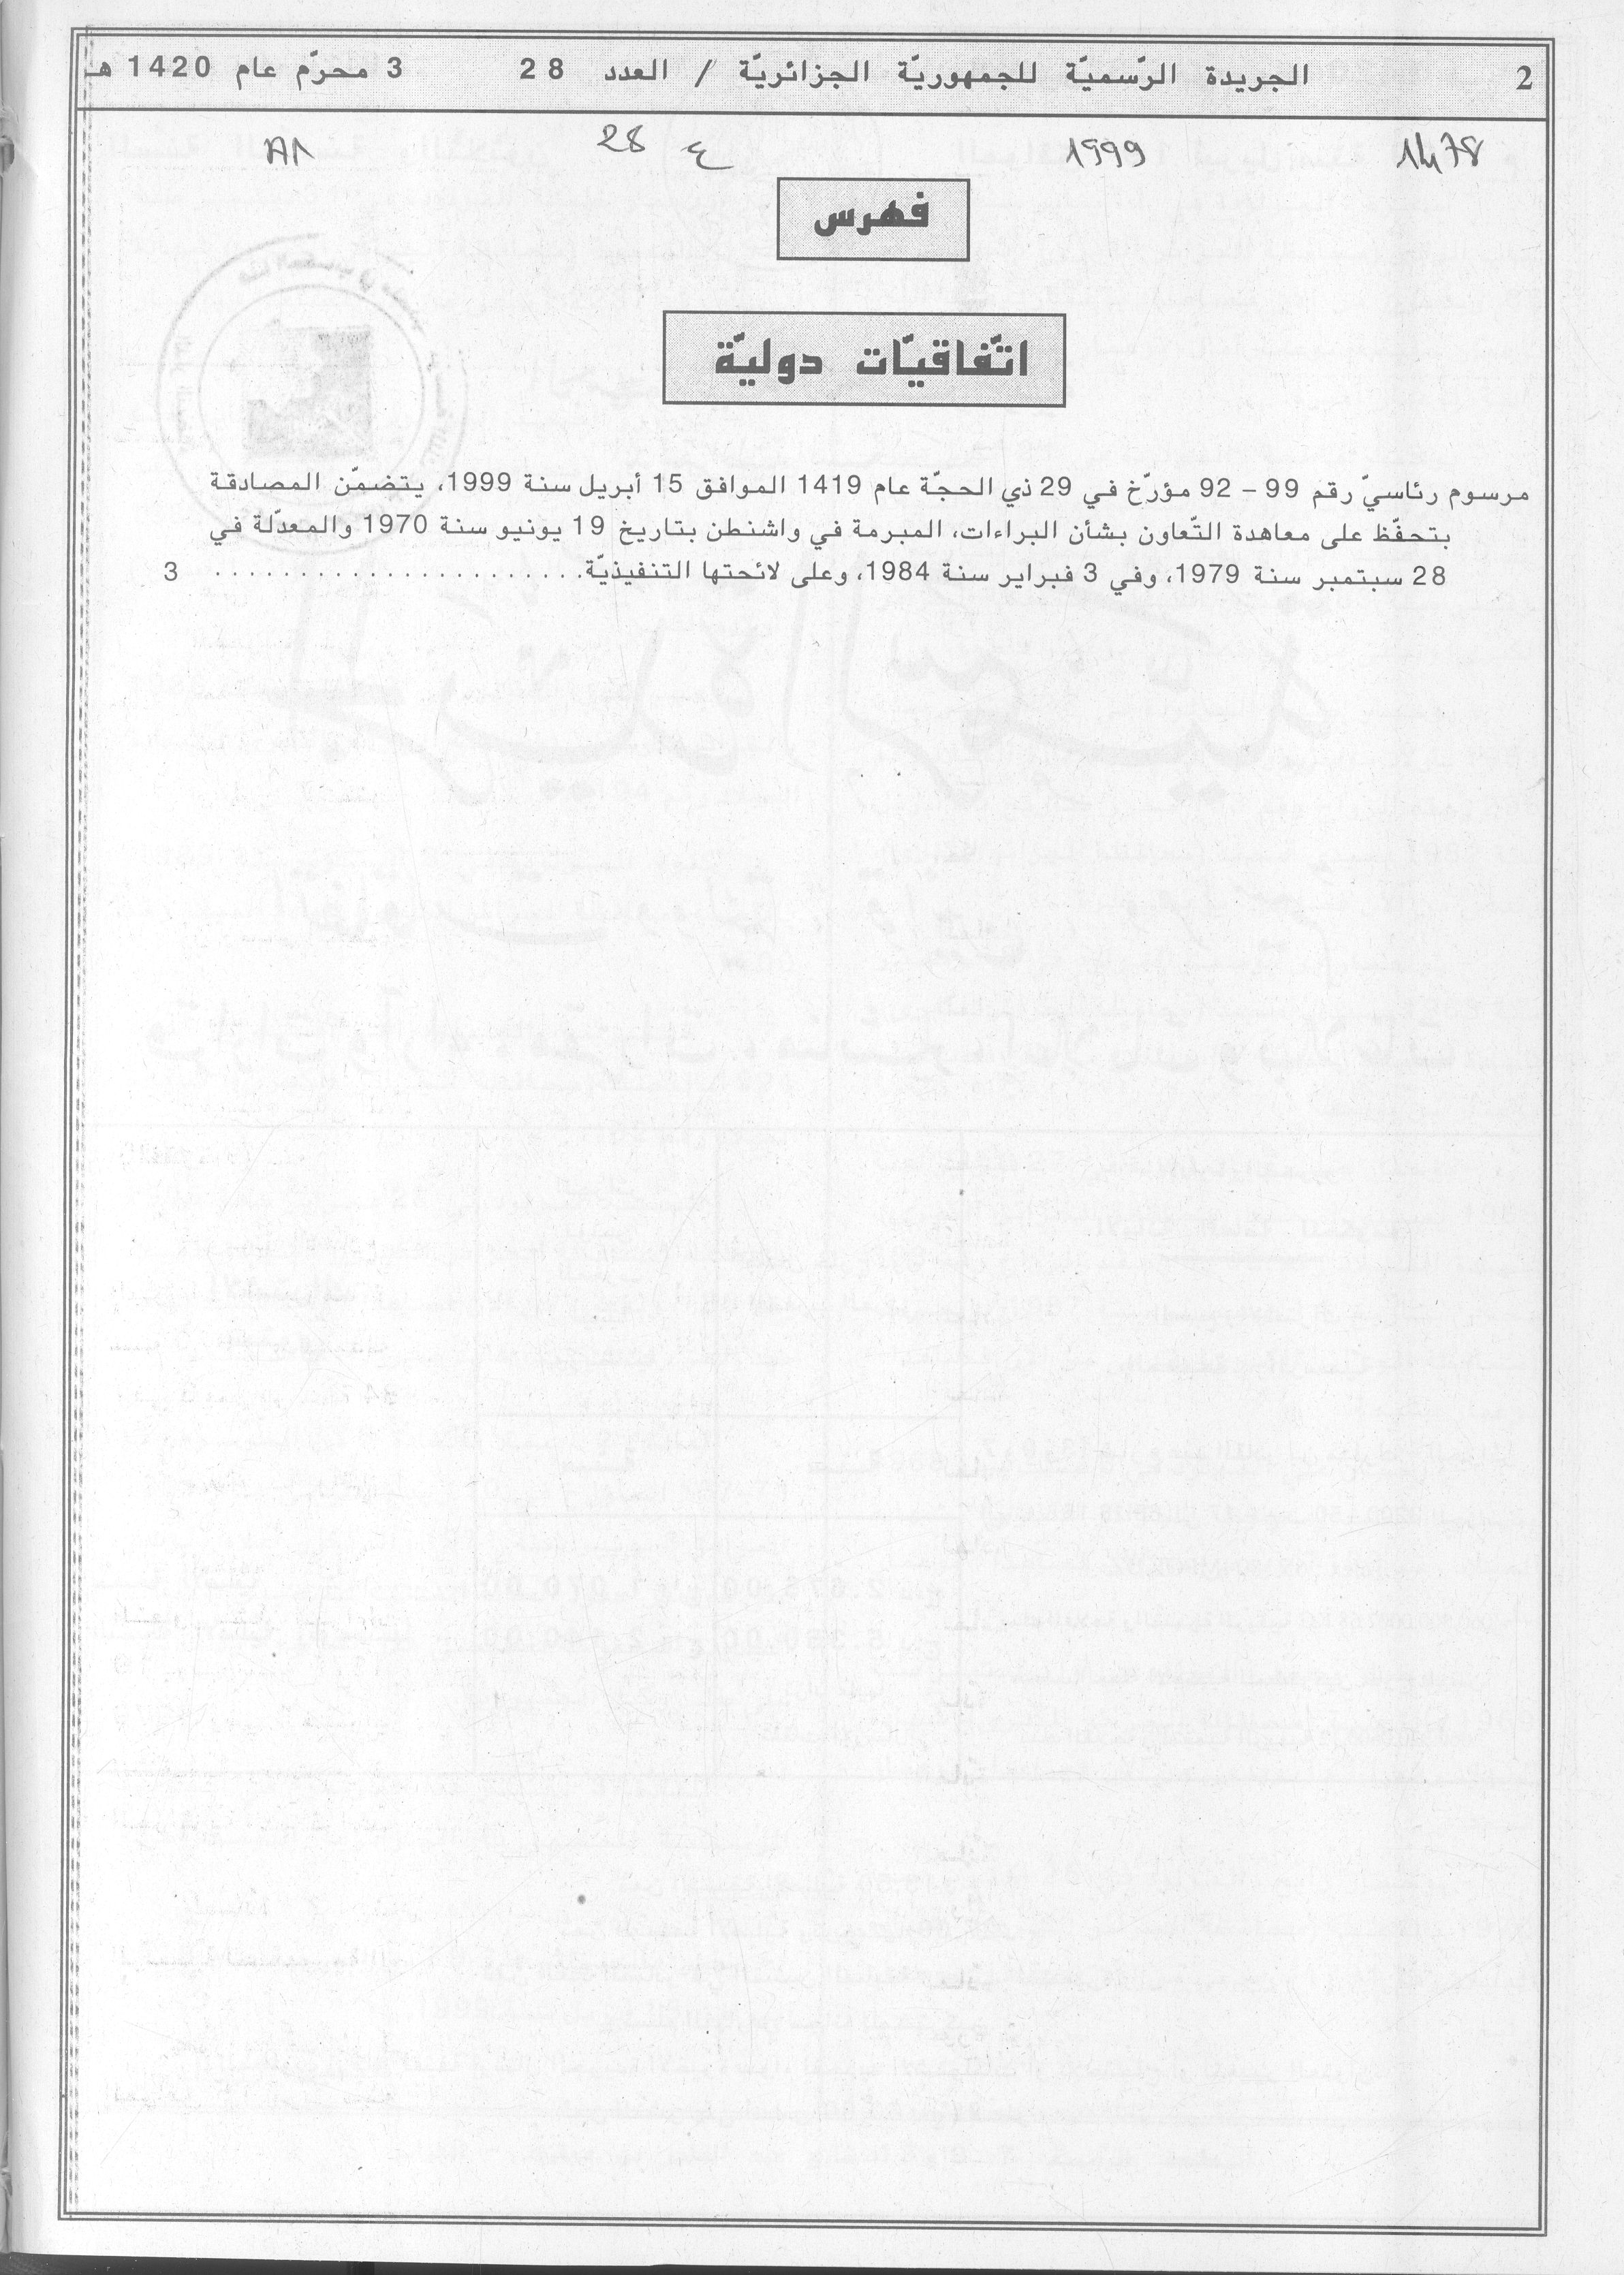 2 الجريدة الرّسميّة للجمهوريّة الجزائريّة / العدد 28 3 محرّم عام 1420 هـ
1478 1999 ع 28
فهرس
اتّفاقيّات دوليّة
مرسوم رئاسيّ رقم 99 – 92 مؤرّخ في 29 ذي الحجّة عام 1419 الموافق 15 أبريل سنة 1999، يتضمّن المصادقة
بتحفّظ على معاهدة التّعاون بشأن البراءات، المبرمة في واشنطن بتاريخ 19 يونيو سنة 1970 والمعدّلة في
28 سبتمبر سنة 1979، وفي 3 فبراير سنة 1984، وعلى لائحتها التنفيذيّة. . . . . . . . . . . . . . . . . . . . . . . . 3